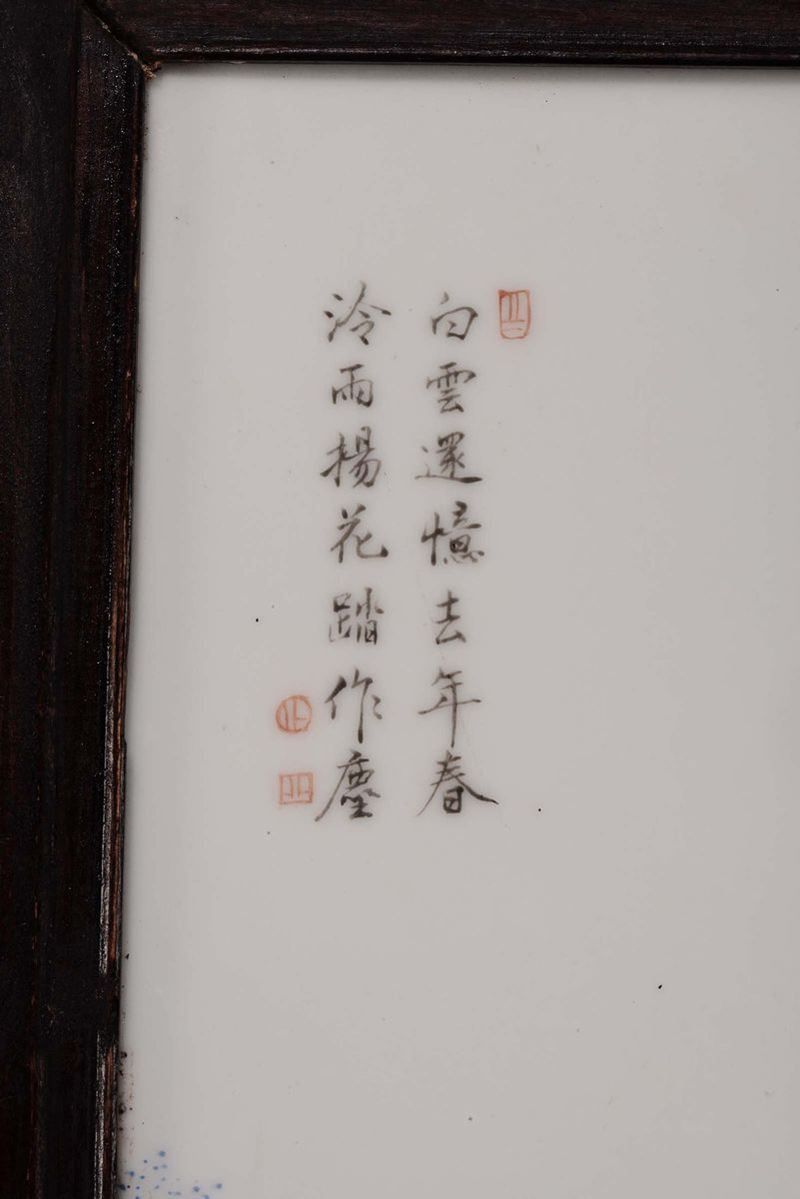 白雲還憶去年春
泠雨楊花踏作塵